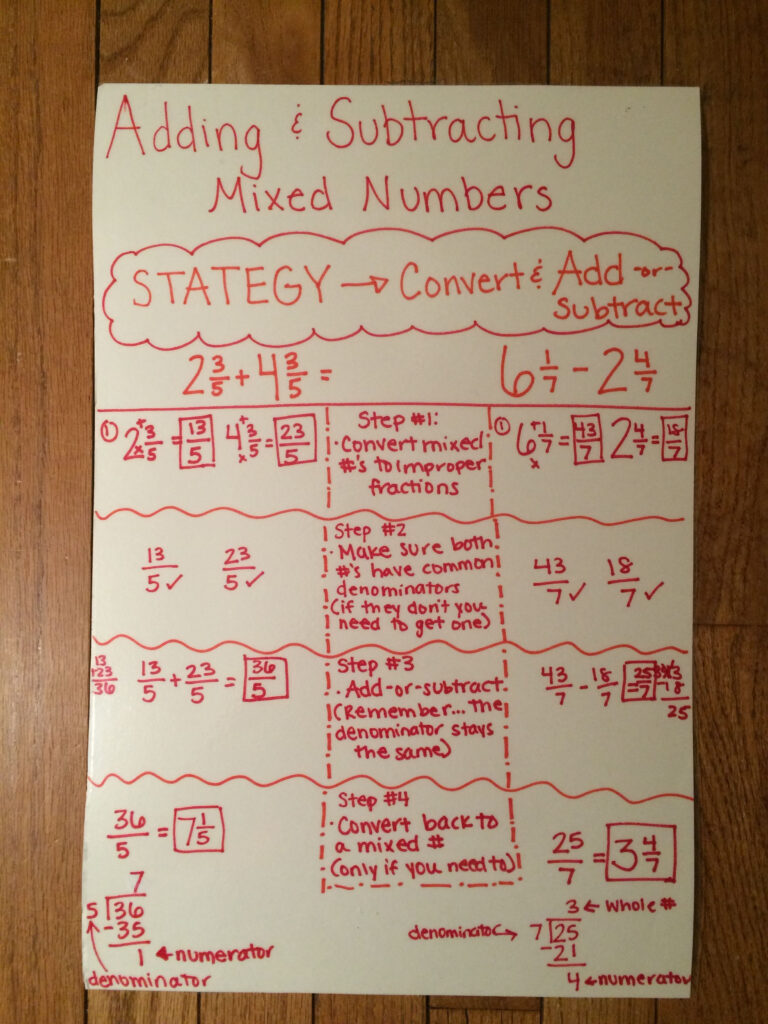 Adding & Subtracting
Mixed Numbers
STATEGY → Convert & Add -or-
Subtract
2 3/5 + 4 3/5 =
6 1/7 - 2 4/7
① 2 3/5 = 13/5 4 3/5 = 23/5
+ x + x
Step #1:
· Convert mixed
#'s to improper
fractions
① 6 1/7 = 43/7 2 4/7 = 18/7
+ x
13/5 ✓ 23/5 ✓
Step #2
· Make sure both
#'s have common
denominators
(if they don't you
need to get one)
43/7 ✓ 18/7 ✓
13
+23
36
13/5 + 23/5 = 36/5
Step #3
· Add-or-subtract
(Remember... the
denominator stays
the same)
43/7 - 18/7 = 25/7
18
25
36/5 = 7 1/5
Step #4
· Convert back to
a mixed #
(only if you need to)
25/7 = 3 4/7
7
5 36
-35
1 ← numerator
denominator
3 ← whole #
denominator → 7 25
-21
4 ← numerator